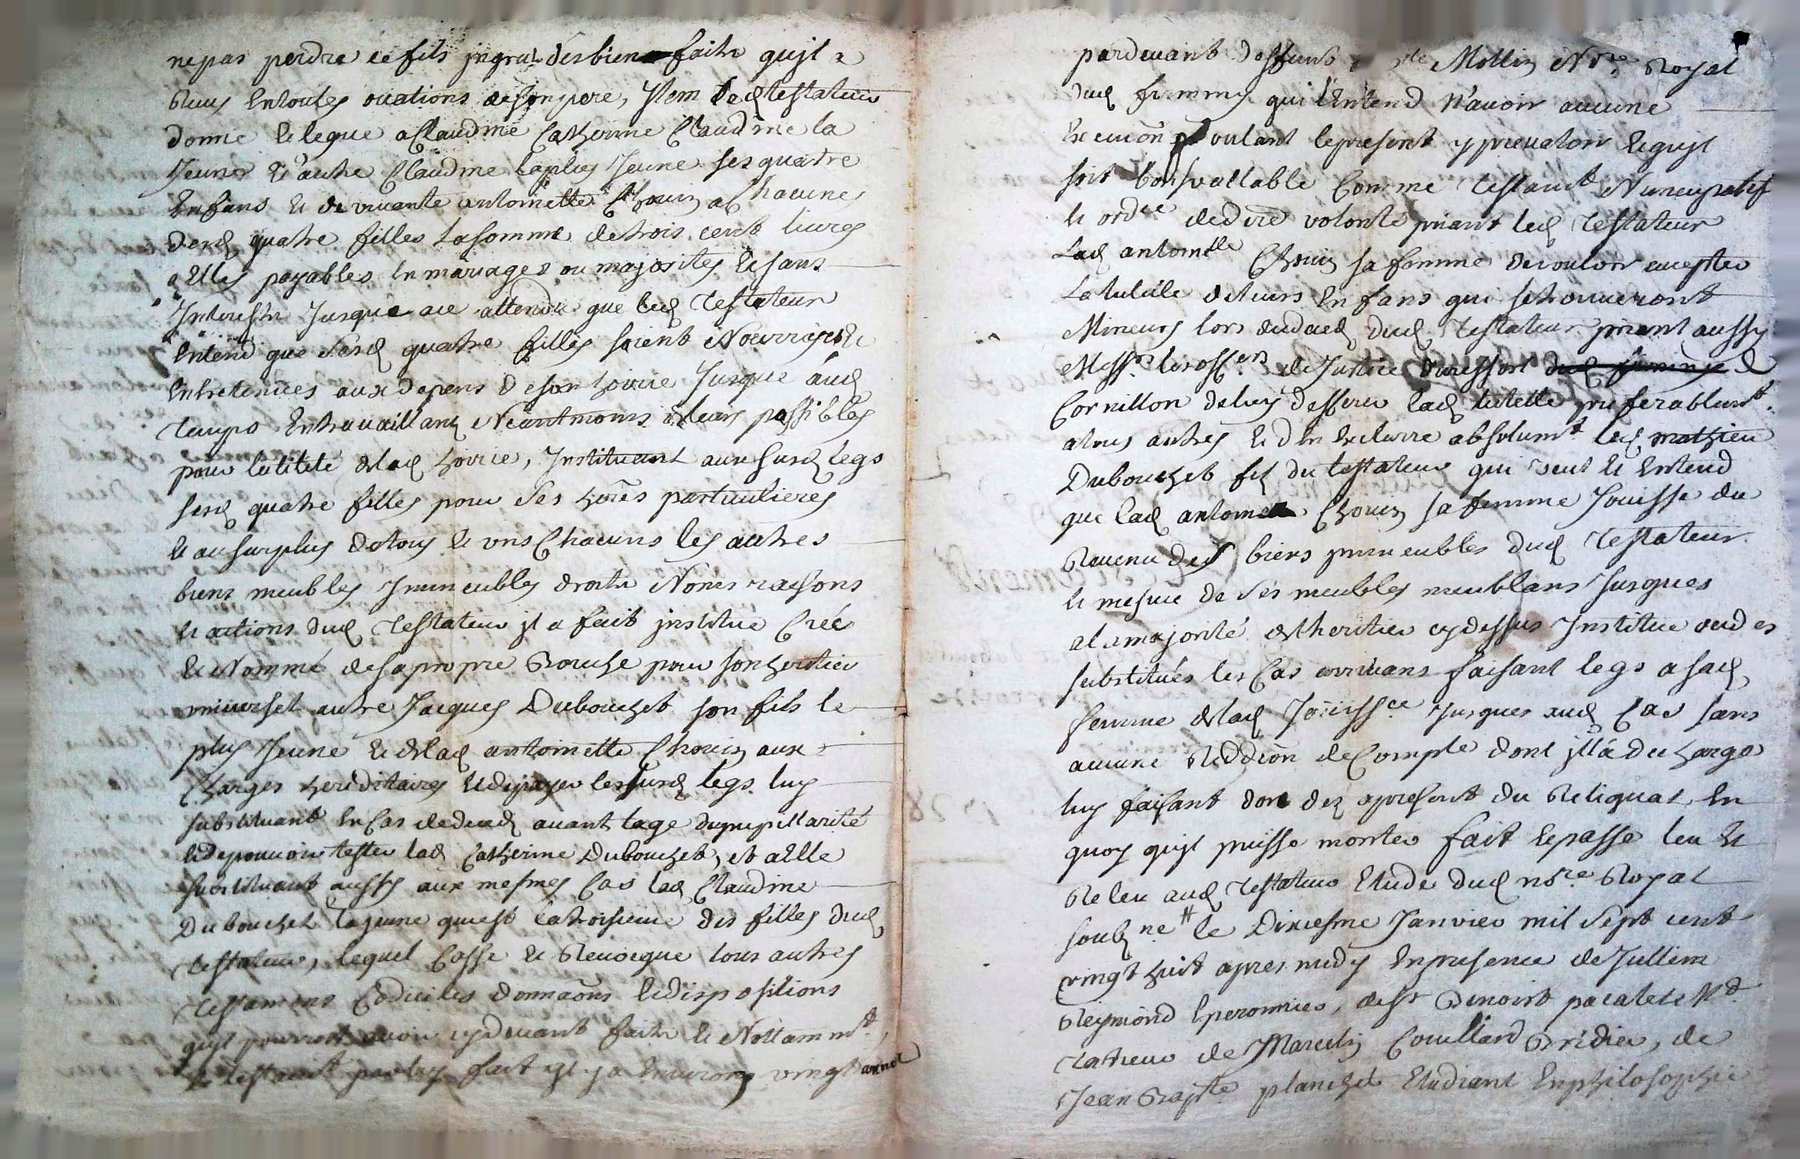 ne pas perdre ce fils jngrat des bien faits qujl a
Reus en toutes ocations de son pere, Jtem led testateur
donne et legue a Claudine Catherine Claudine la
Jeune et autre Claudine la plus Jeune ses quatre
enfans et de vivante antoinette Chouin a Chacunes
desd quatre filles la somme de trois cent livres
a Elles payables en mariages ou majorites et sans
Interestz Jusque a ce attendu que led testateur
entend que sesd quatre filles soient Nourries et
entretenues aux depens de son hoirie Jusque aud
temps en travaillant Neantmoins a leurs possibles
pour lutilité de lad hoirie, Instituant aux susd legs
sesd quatre filles pour ses hoires particulieres
et au surplus de tous et uns Chacuns les autres
biens meubles Immeubles droits Noms raisons
et actions dud testateur jl a fait jnstitué Créé
et Nommé de sa propre Bouche pour son heritier
universel autre Jacques Dubouchet son fils le
plus Jeune et de lad antoinette Chouin aux
Charges hereditaires et de payer les susd legs luy
substituant en Cas de deced avant lage de pupillarité
et de pouvoir tester lad Catherine Dubouchet, et a Elle
substituant aussy aux mesmes Cas lad Claudine
Dubouchet la jeune qui est la troisieme des filles dud
testateur, lequel Casse et Revocque tous autres
testamens Codiciles donnaõns et dispositions
qujl pourroit avoir cy devant faits et Nottamm.t
le testam.t par luy fait jl y a Environ vingt années
pardevant deffunt Mollin No.re Royal
dud firminy qu'il Entend n'avoir aucune
Execuõn Voulant le present y prevaloir et qujl
soit bon vallable Comme testam.t Nuncupatif
et ord.ce de dere volonté priant led testateur
Lad antoin.lle Chouin sa femme de vouloir accepter
La tutelle de leurs enfans qui se trouveront
Mineurs lors du deced dud testateur priant aussy
Mess.rs les off.ers de Justice du ressort dud firminy de
Cornillon de luy defferer lad tutelle preferablem.t
a tous autres et d'en exclurre absolum.t led mathieu
Dubouchet fil du testateur qui veut et Entend
que lad antoin Chouin sa femme Jouisse du
Revenu des biens jmmeubles dud testateur
et mesme de ses meubles meublans Jusques
a la majorité de lheritier cy dessus Institué ou des
substitués les Cas arrivans faisant legs a sad
femme de lad Jouiss.ce Jusques aud Cas sans
aucune Reddiõn de Compte dont jl la decharge
luy faisant don dez apresent du Reliquat En
quoy qujl puisse monter fait et passé leu et
Releu aud testateur Etude dud no.re Royal
soubz.ne # le Dixiesme Janvier mil sept cent
vingt huit apres midy En presence de Jullien
Reymond Eperonnier, de s.r Benoist
de Marcelin Couillard Bridier, de
Jean Bap.te planchet Etudiant En philosophie